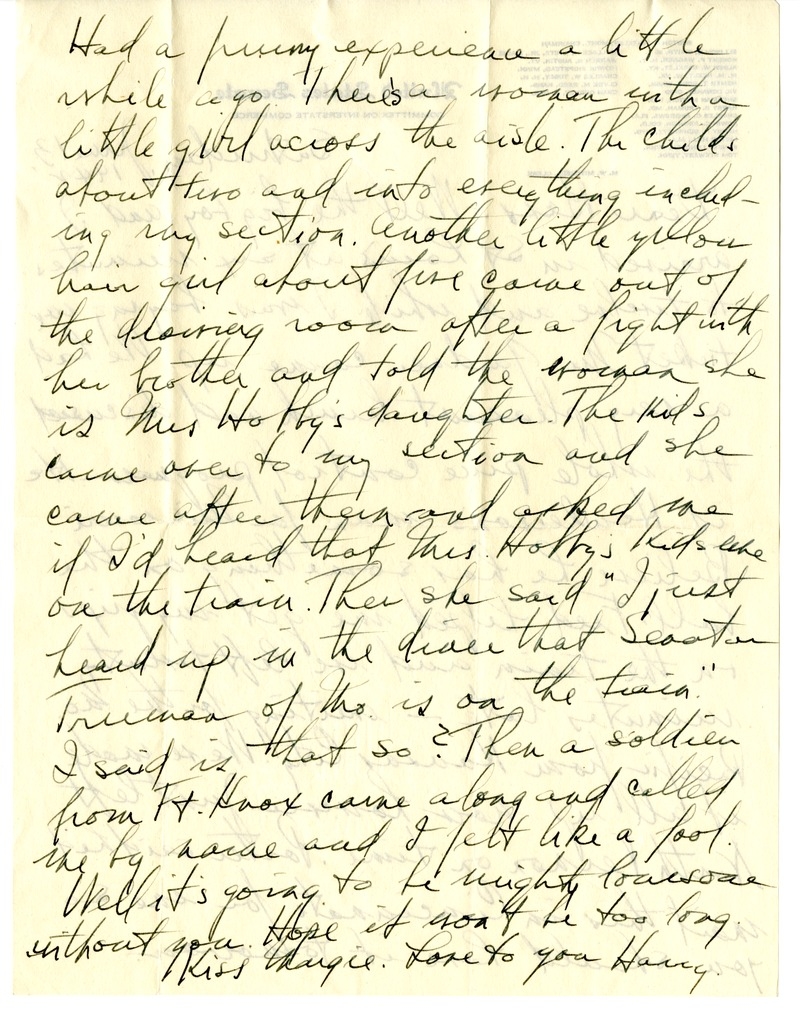 Had a funny experience a little
while ago. There's a woman with a
little girl across the aisle. The childs
about two and into everything includ-
ing my section. Another little yellow
hair girl about five came out of
the drawing room after a fight with
her brother and told the woman she
is Mrs Hobby's daughter. The kids
came over to my section and she
came after them and asked me
if I'd heard that Mrs. Hobby's kids are
on the train. Then she said "I just
heard up in the diner that Senator
Truman of Mo. is on the train."
I said is that so? Then a soldier
from Ft. Knox came along and called
me by name and I felt like a fool.
Well it's going to be mighty lonesome
without you. Hope it won't be too long.
Kiss Margie. Love to you Harry.